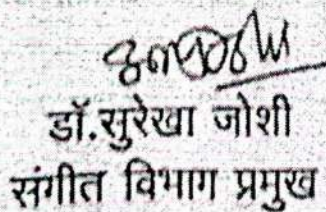 डॉ.सुरेखा जोशी
संगीत विभाग प्रमुख